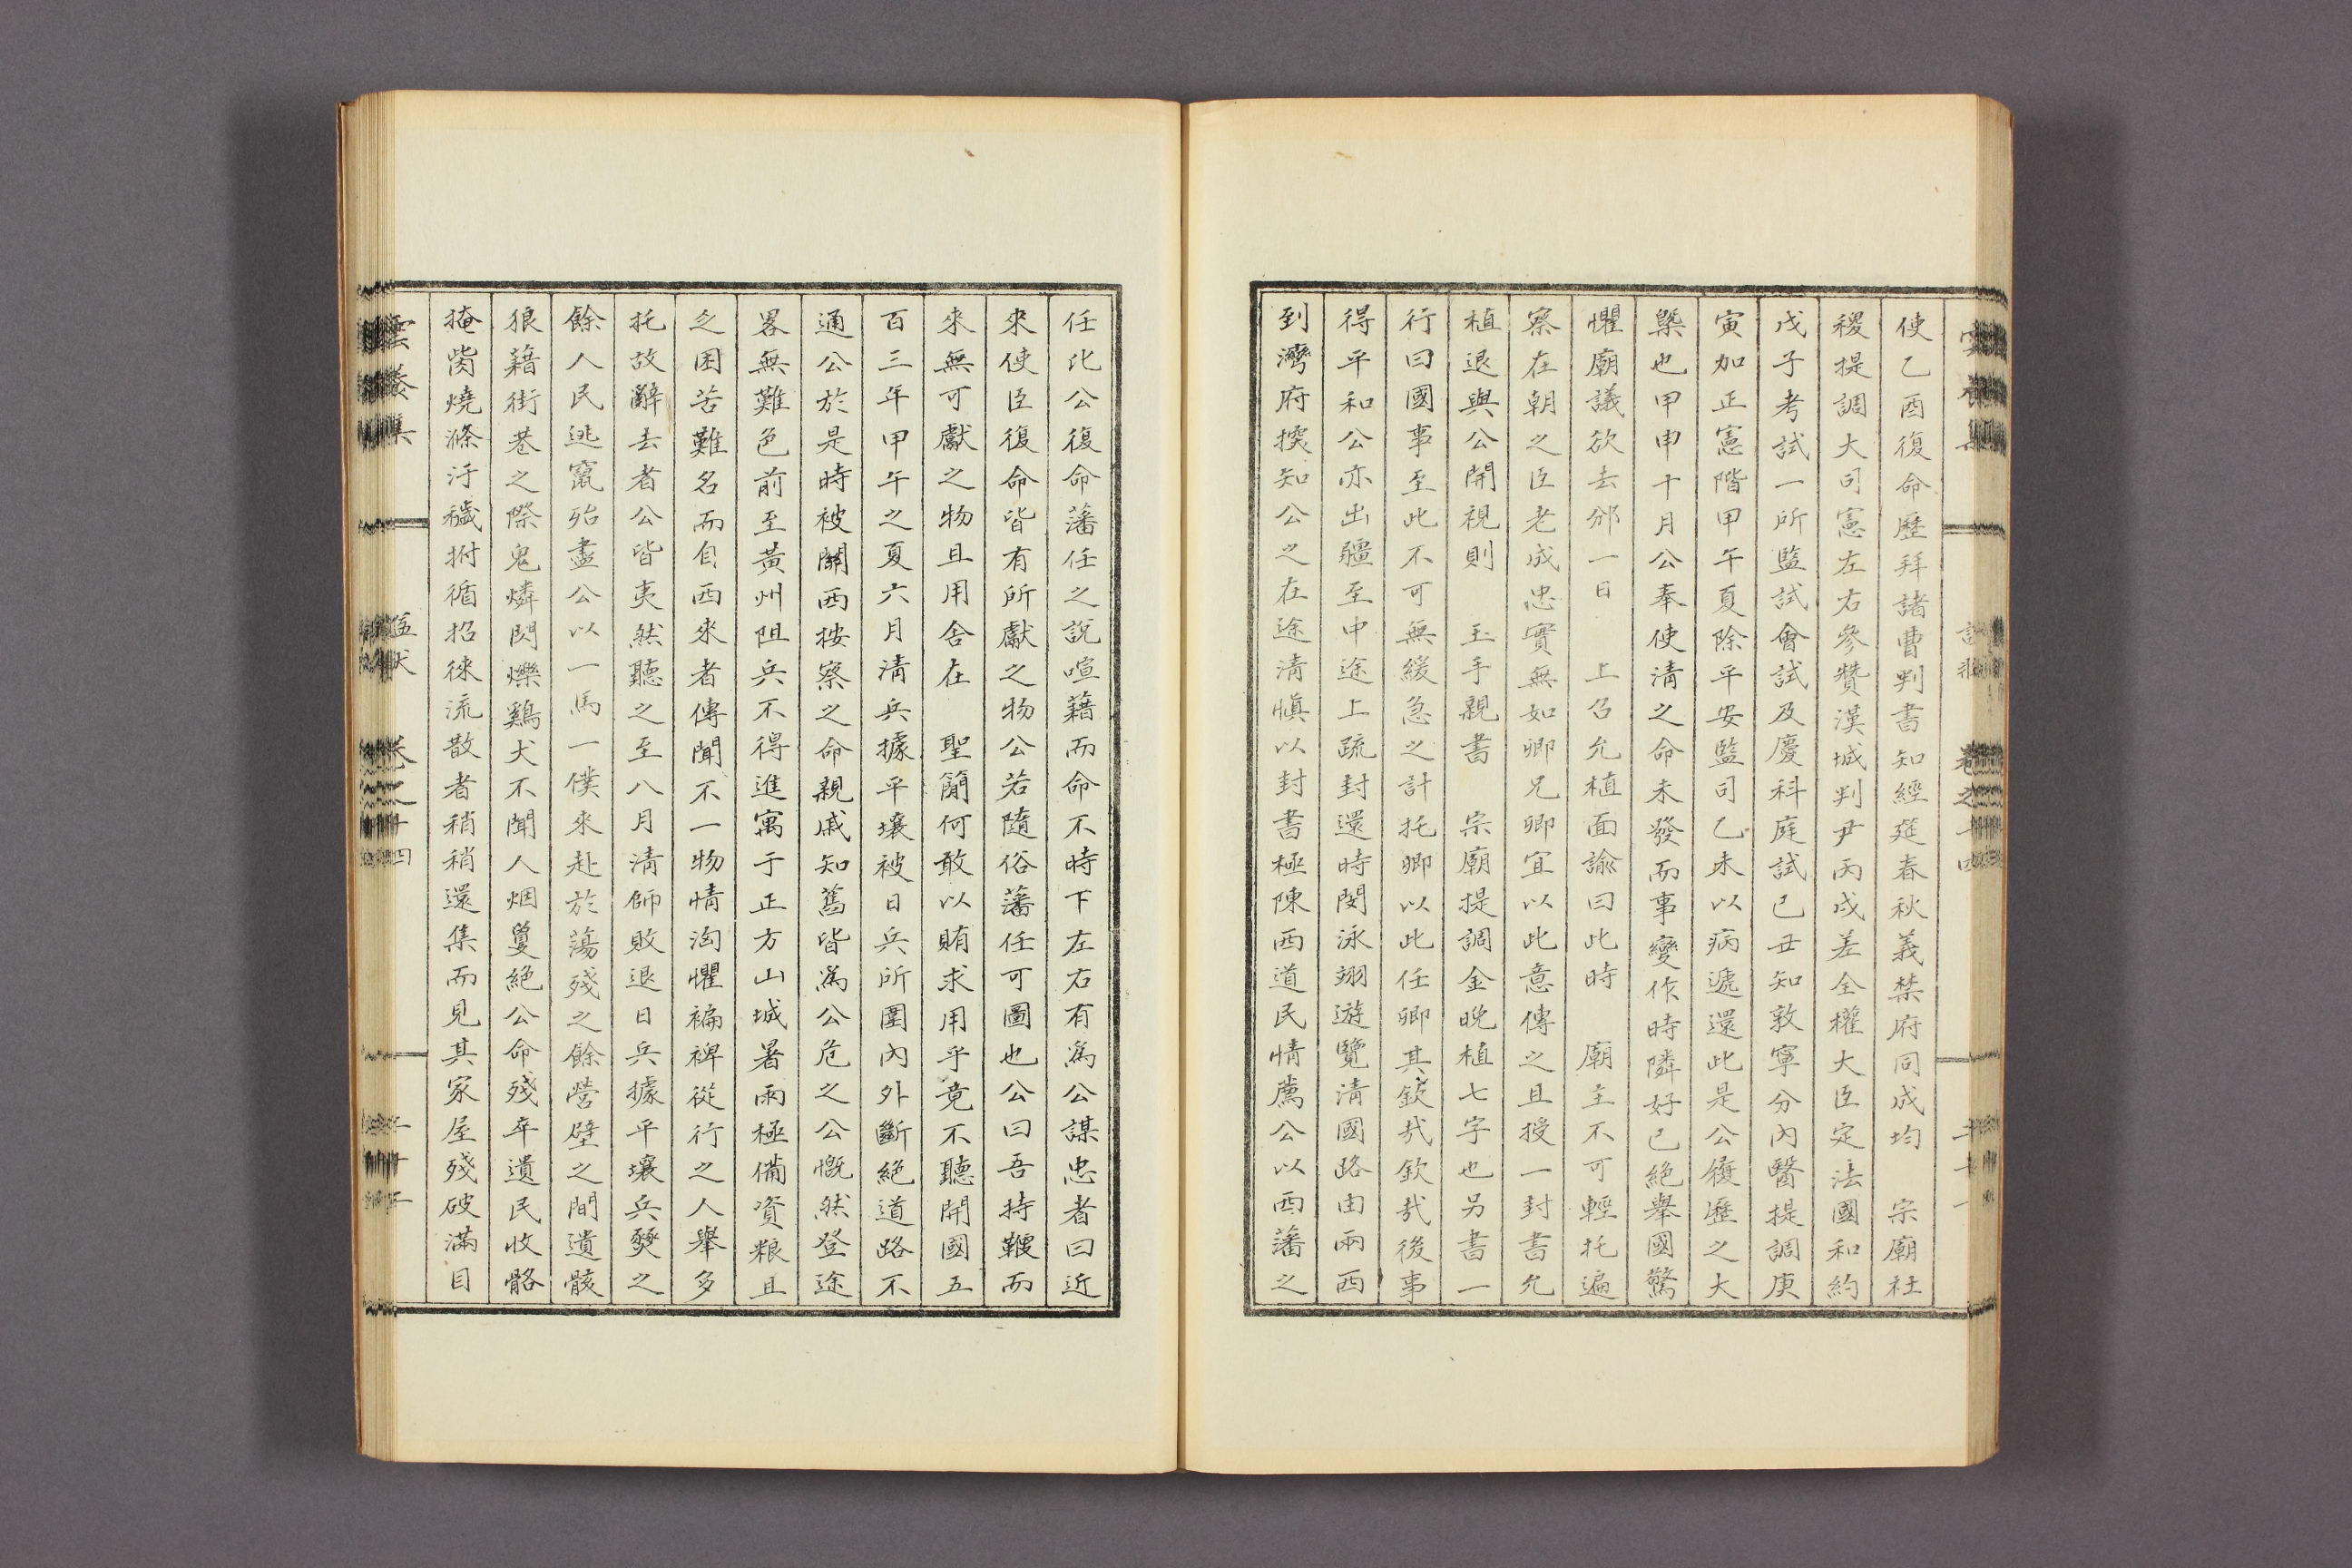 使乙酉復命歷拜諸曹判書知經筵春秋義禁府同成均 宗廟社
稷提調大司憲左右參贊漢城判尹丙戌差全權大臣定法國和約
戊子考試一所監試會試及慶科庭試己丑知敦寧分內醫提調庚
寅加正憲階甲午夏除平安監司乙未以病遞還此是公履歷之大
槩也甲申十月公奉使淸之命未發而事變作時隣好已絕舉國驚
懼廟議欲去邠一日 上召允植面諭曰此時 廟主不可輕托遍
察在朝之臣老成忠實無如卿兄卿宜以此意傳之且授一封書允
植退與公開視則 玉手親書 宗廟提調金晩植七字也另書一
行曰國事至此不可無緩急之計托卿以此任卿其欽哉欽哉後事
得平和公亦出疆至中途上疏封還時閔泳翊遊覽淸國路由兩西
到灣府揆知公之在途淸愼以封書極陳西道民情薦公以西藩之
任比公復命藩任之說喧藉而命不時下左右有爲公謀忠者曰近
來使臣復命皆有所獻之物公若隨俗藩任可圖也公曰吾持鞭而
來無可獻之物且用舍在 聖簡何敢以賄求用乎竟不聽開國五
百三年甲午之夏六月淸兵據平壤被日兵所圍內外斷絕道路不
通公於是時被關西按察之命親戚知舊皆爲公危之公慨然登途
畧無難色前至黃州阻兵不得進寓于正方山城暑雨極備資粮且
乏困苦難名而自西來者傳聞不一物情洶懼褊裨從行之人舉多
托故辭去者公皆夷然聽之至八月淸師敗退日兵據平壤兵燹之
餘人民逃竄殆盡公以一馬一僕來赴於蕩殘之餘營壁之間遺骸
狼藉街巷之際鬼燐閃爍鷄犬不聞人烟夐絕公命殘卒遺民收骼
掩胔燒滌汙穢拊循招徠流散者稍稍還集而見其家屋殘破滿目
雲養集 卷之十四